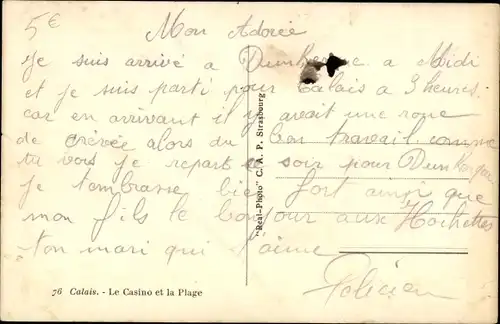 5€
Mon Adorée
Je suis arrivé a Dunkerque a Midi
et je suis parti pour Calais a 3 heures.
car en arrivant il y avait une roue
de crévée alors du bon travail comme
tu vois je repart ce soir pour Dunkerque
je t'embrasse bien fort ainsi que
mon fils le bonjour aux Hochettes
ton mari qui t'aime
"Real-Photo" C. A. P. Strasbourg
76 Calais. - Le Casino et la Plage